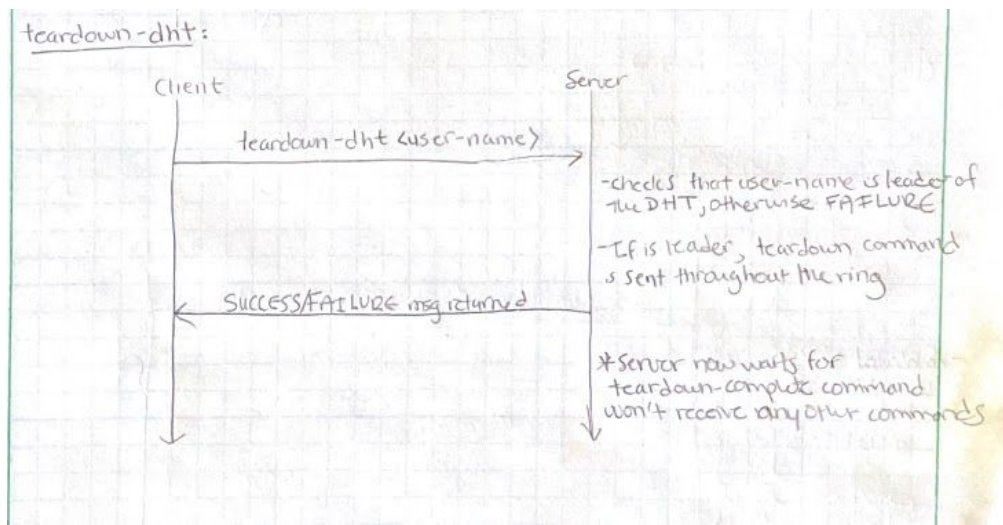 teardown-dht:
Client
Server
teardown-dht <user-name>
-checks that user-name is leader of
the DHT, otherwise FAILURE
-If is leader, teardown command
is sent throughout the ring
SUCCESS/FAILURE msg returned
* Server now waits for
teardown-complete command
won't receive any other commands